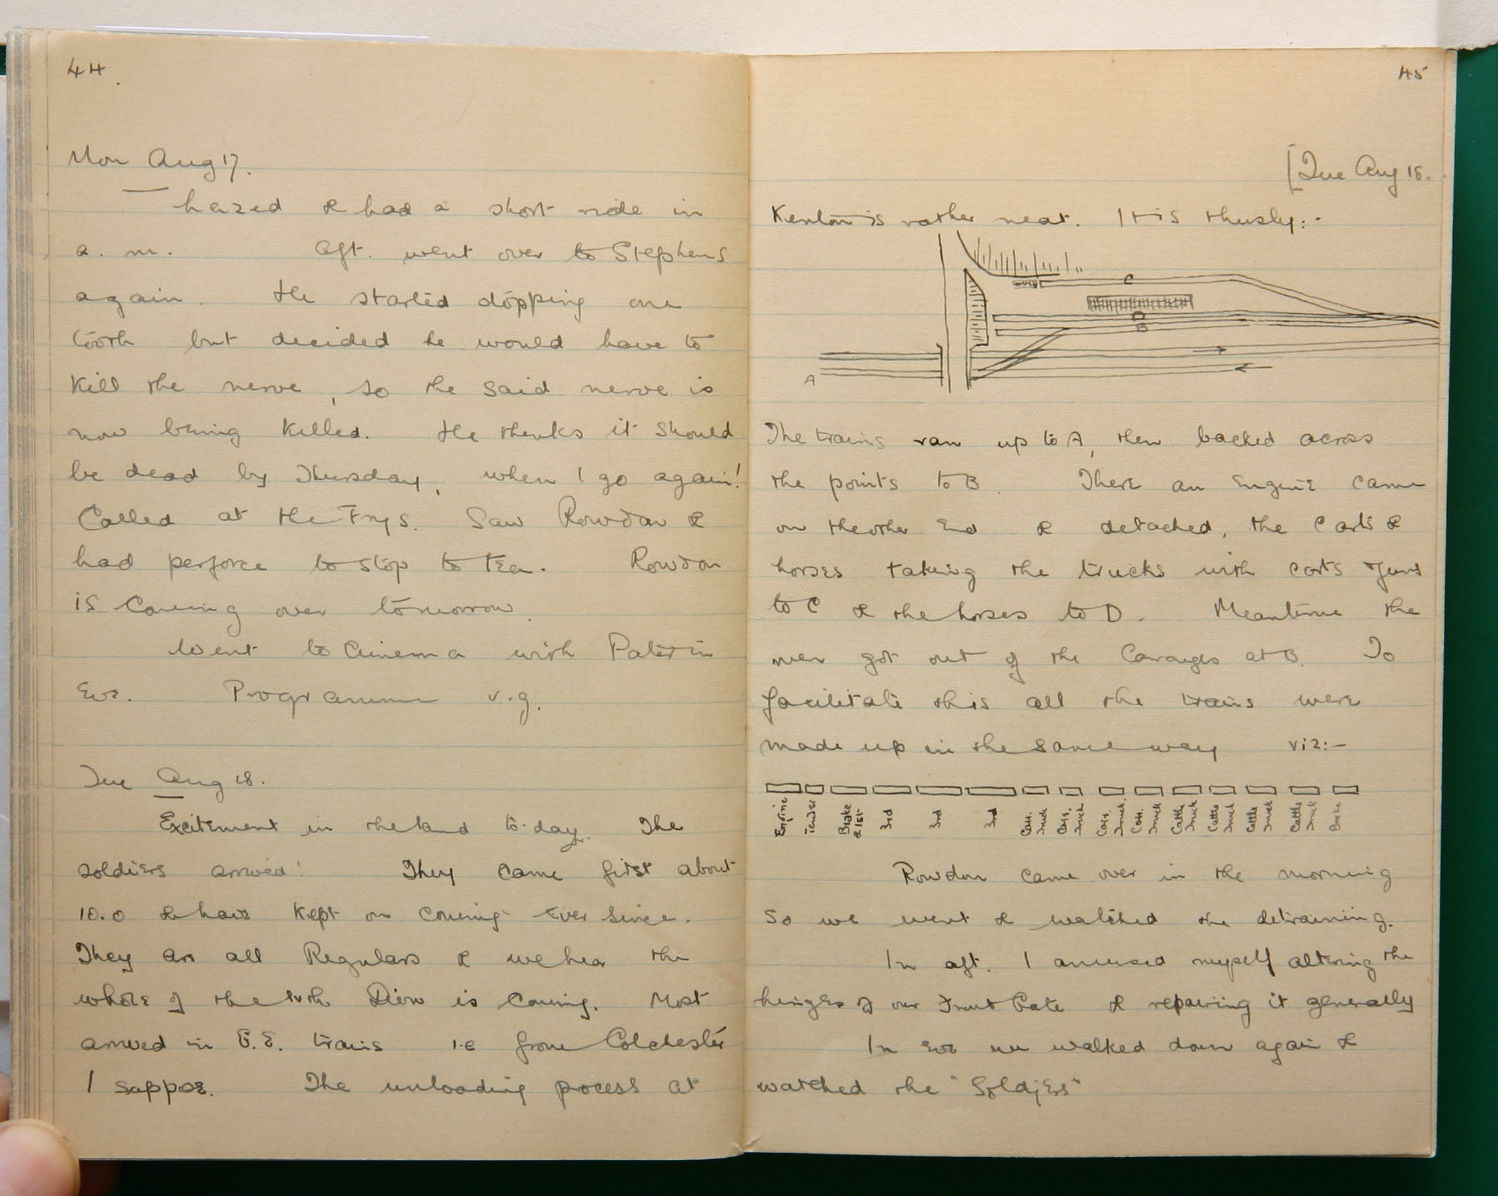 44.
Mon Aug 17.
Lazed & had a short ride in
a. m. Aft. went over to Stephens
again. He started dopping one
tooth but decided he would have to
kill the nerve, so the said nerve is
now being killed. He thinks it should
be dead by Thursday, when I go again!
Called at the Frys. Saw Rowdon &
had perforce to stop to tea. Rowdon
is coming over tomorrow.
Went to Cinema with Pater in
Eve. Programme v.g.
Tue Aug 18.
Excitement in the land to-day. The
soldiers arrived! They came first about
10.0 & have kept on coming ever since.
They are all Regulars & we hear the
whole of the IVth Divn is coming. Most
arrived in G.E. trains i.e from Colchester
I suppose. The unloading process at
45
[Tue Aug 18.
Kenton is rather neat. It is thusly:-
C
D
B
A
The trains ran up to A, then backed across
the points to B. There an Engine came
on the other End & detached, the carts &
horses taking the trucks with carts & guns
to C & the horses to D. Meantime the
men got out of the Carriages at B. To
facilitate this all the trains were
made up in the same way viz:-
Engine Tender Brake & 1st 3rd 3rd 3rd Carr. Truck Carr. Truck Carr. Truck Carr. Truck Cattle Truck Cattle Truck Cattle Truck Cattle Truck Brake
Rowdon came over in the morning
so we went & watched the detraining.
In aft. I amused myself altering the
hinges of our Front Gate & repairing it generally
In Eve we walked down again &
watched the "Soldjers"